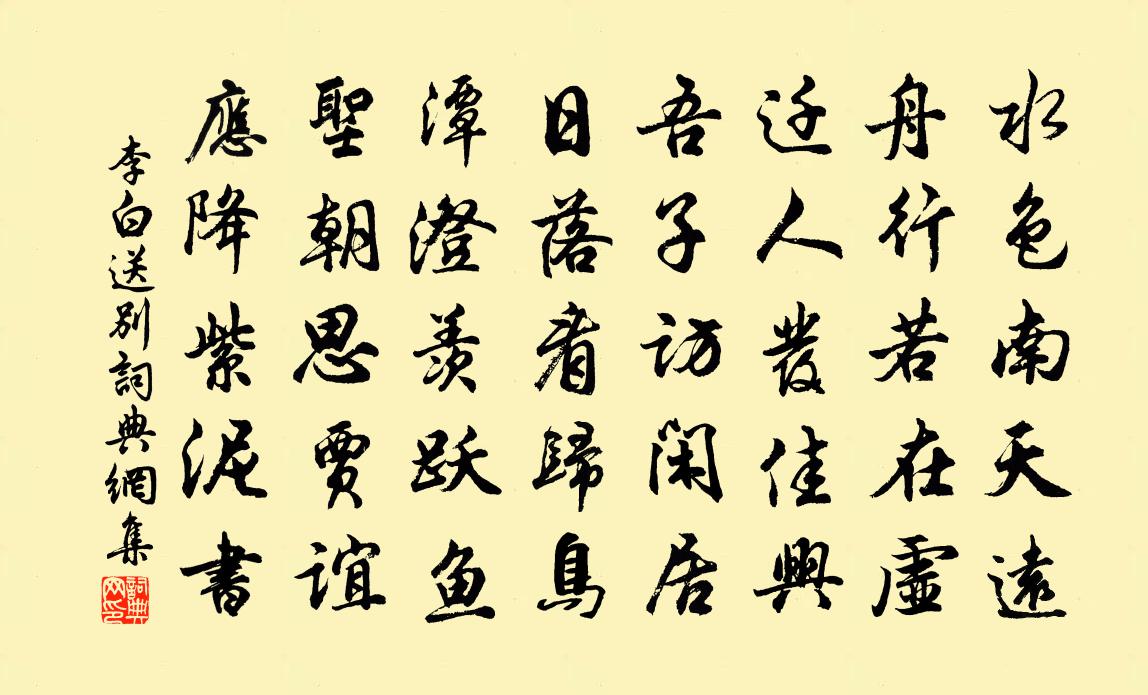 水色南天遠
舟行若在虛
迁人發佳興
吾子訪閑居
日落看歸鳥
潭澄羨跃鱼
聖朝思賈誼
應降紫泥書
李白送別詞典網集
詞典
网印